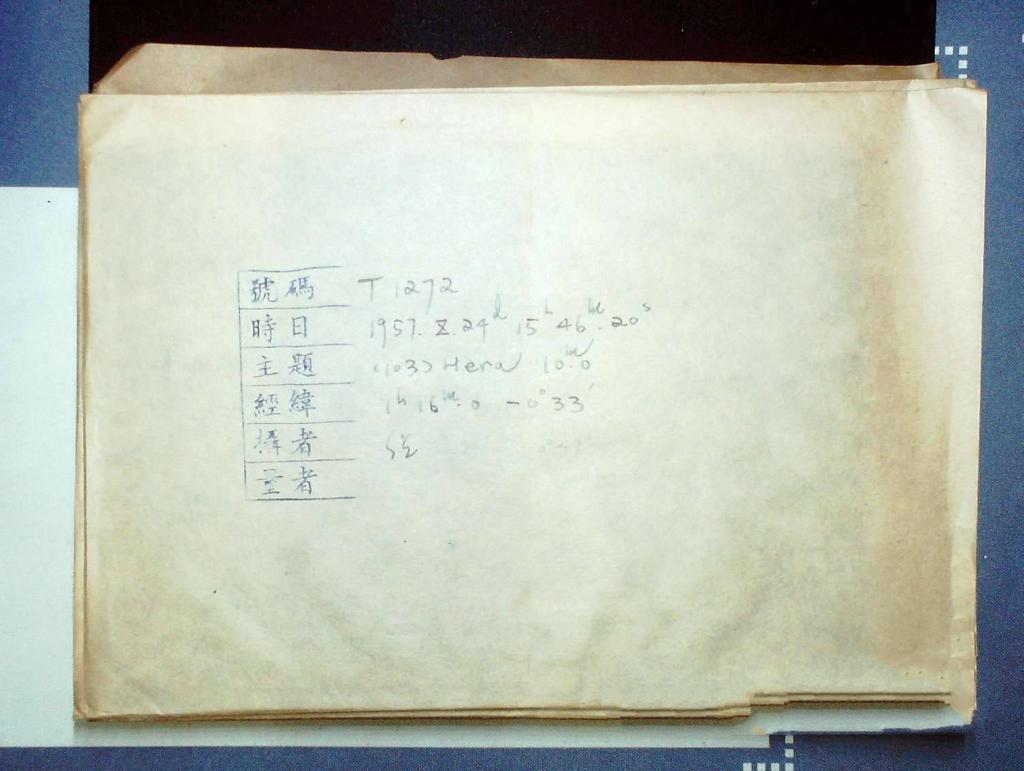 號碼 T 1272
時日 1957. X. 24ᵈ 15ʰ 46ᵐ. 20ˢ
主題 (103) Hera 10ᵐ.0
經緯 1ʰ 16ᵐ.0 -0°33′
攝者
量者